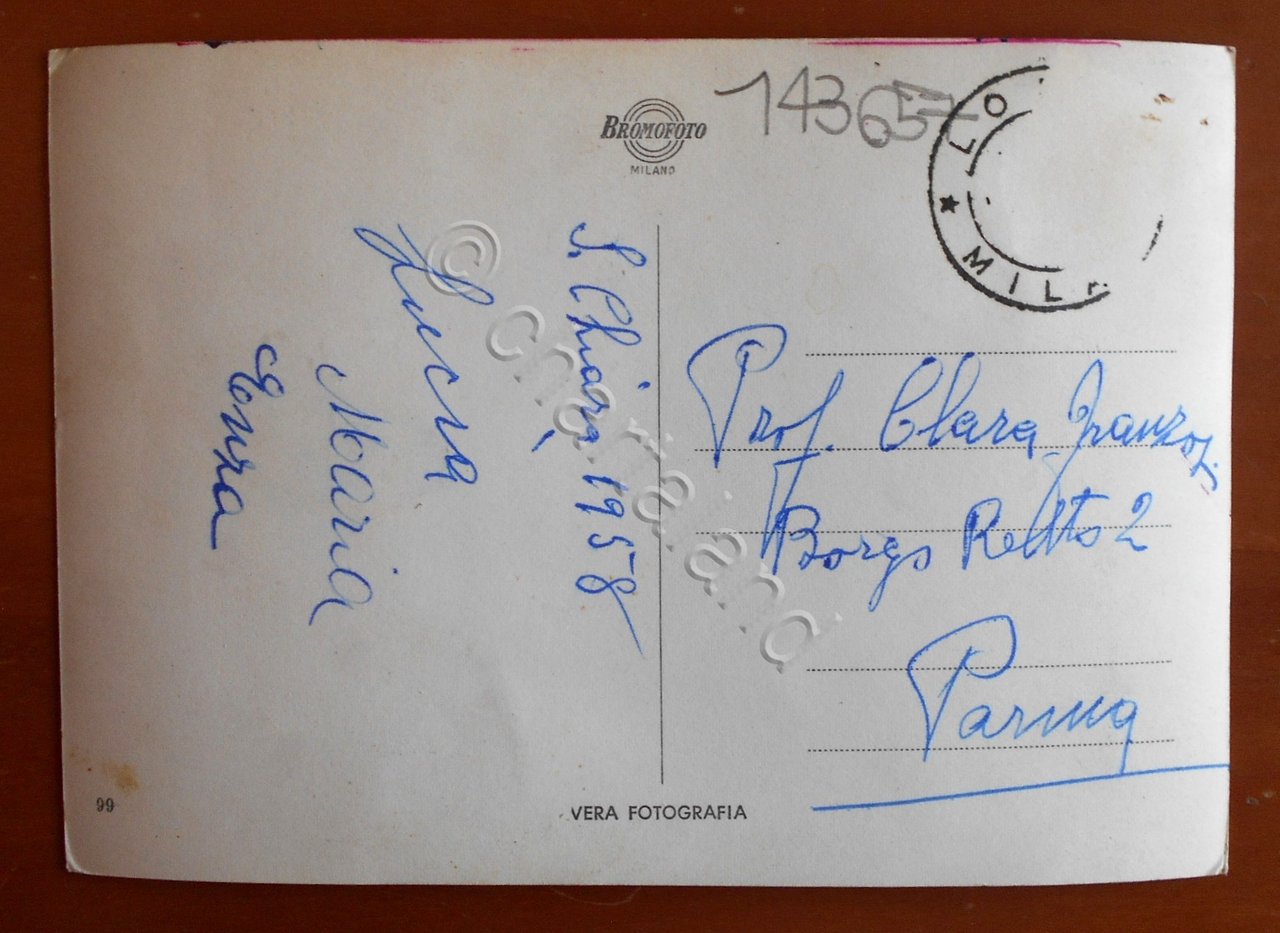 143657
BROMOFOTO
MILANO
LO
★ MIL
S. Chiara, 1958
Maria
Enza
Prof. Clara Franzoj
Borgo Retto 2
Parma
99
VERA FOTOGRAFIA
© chartaland